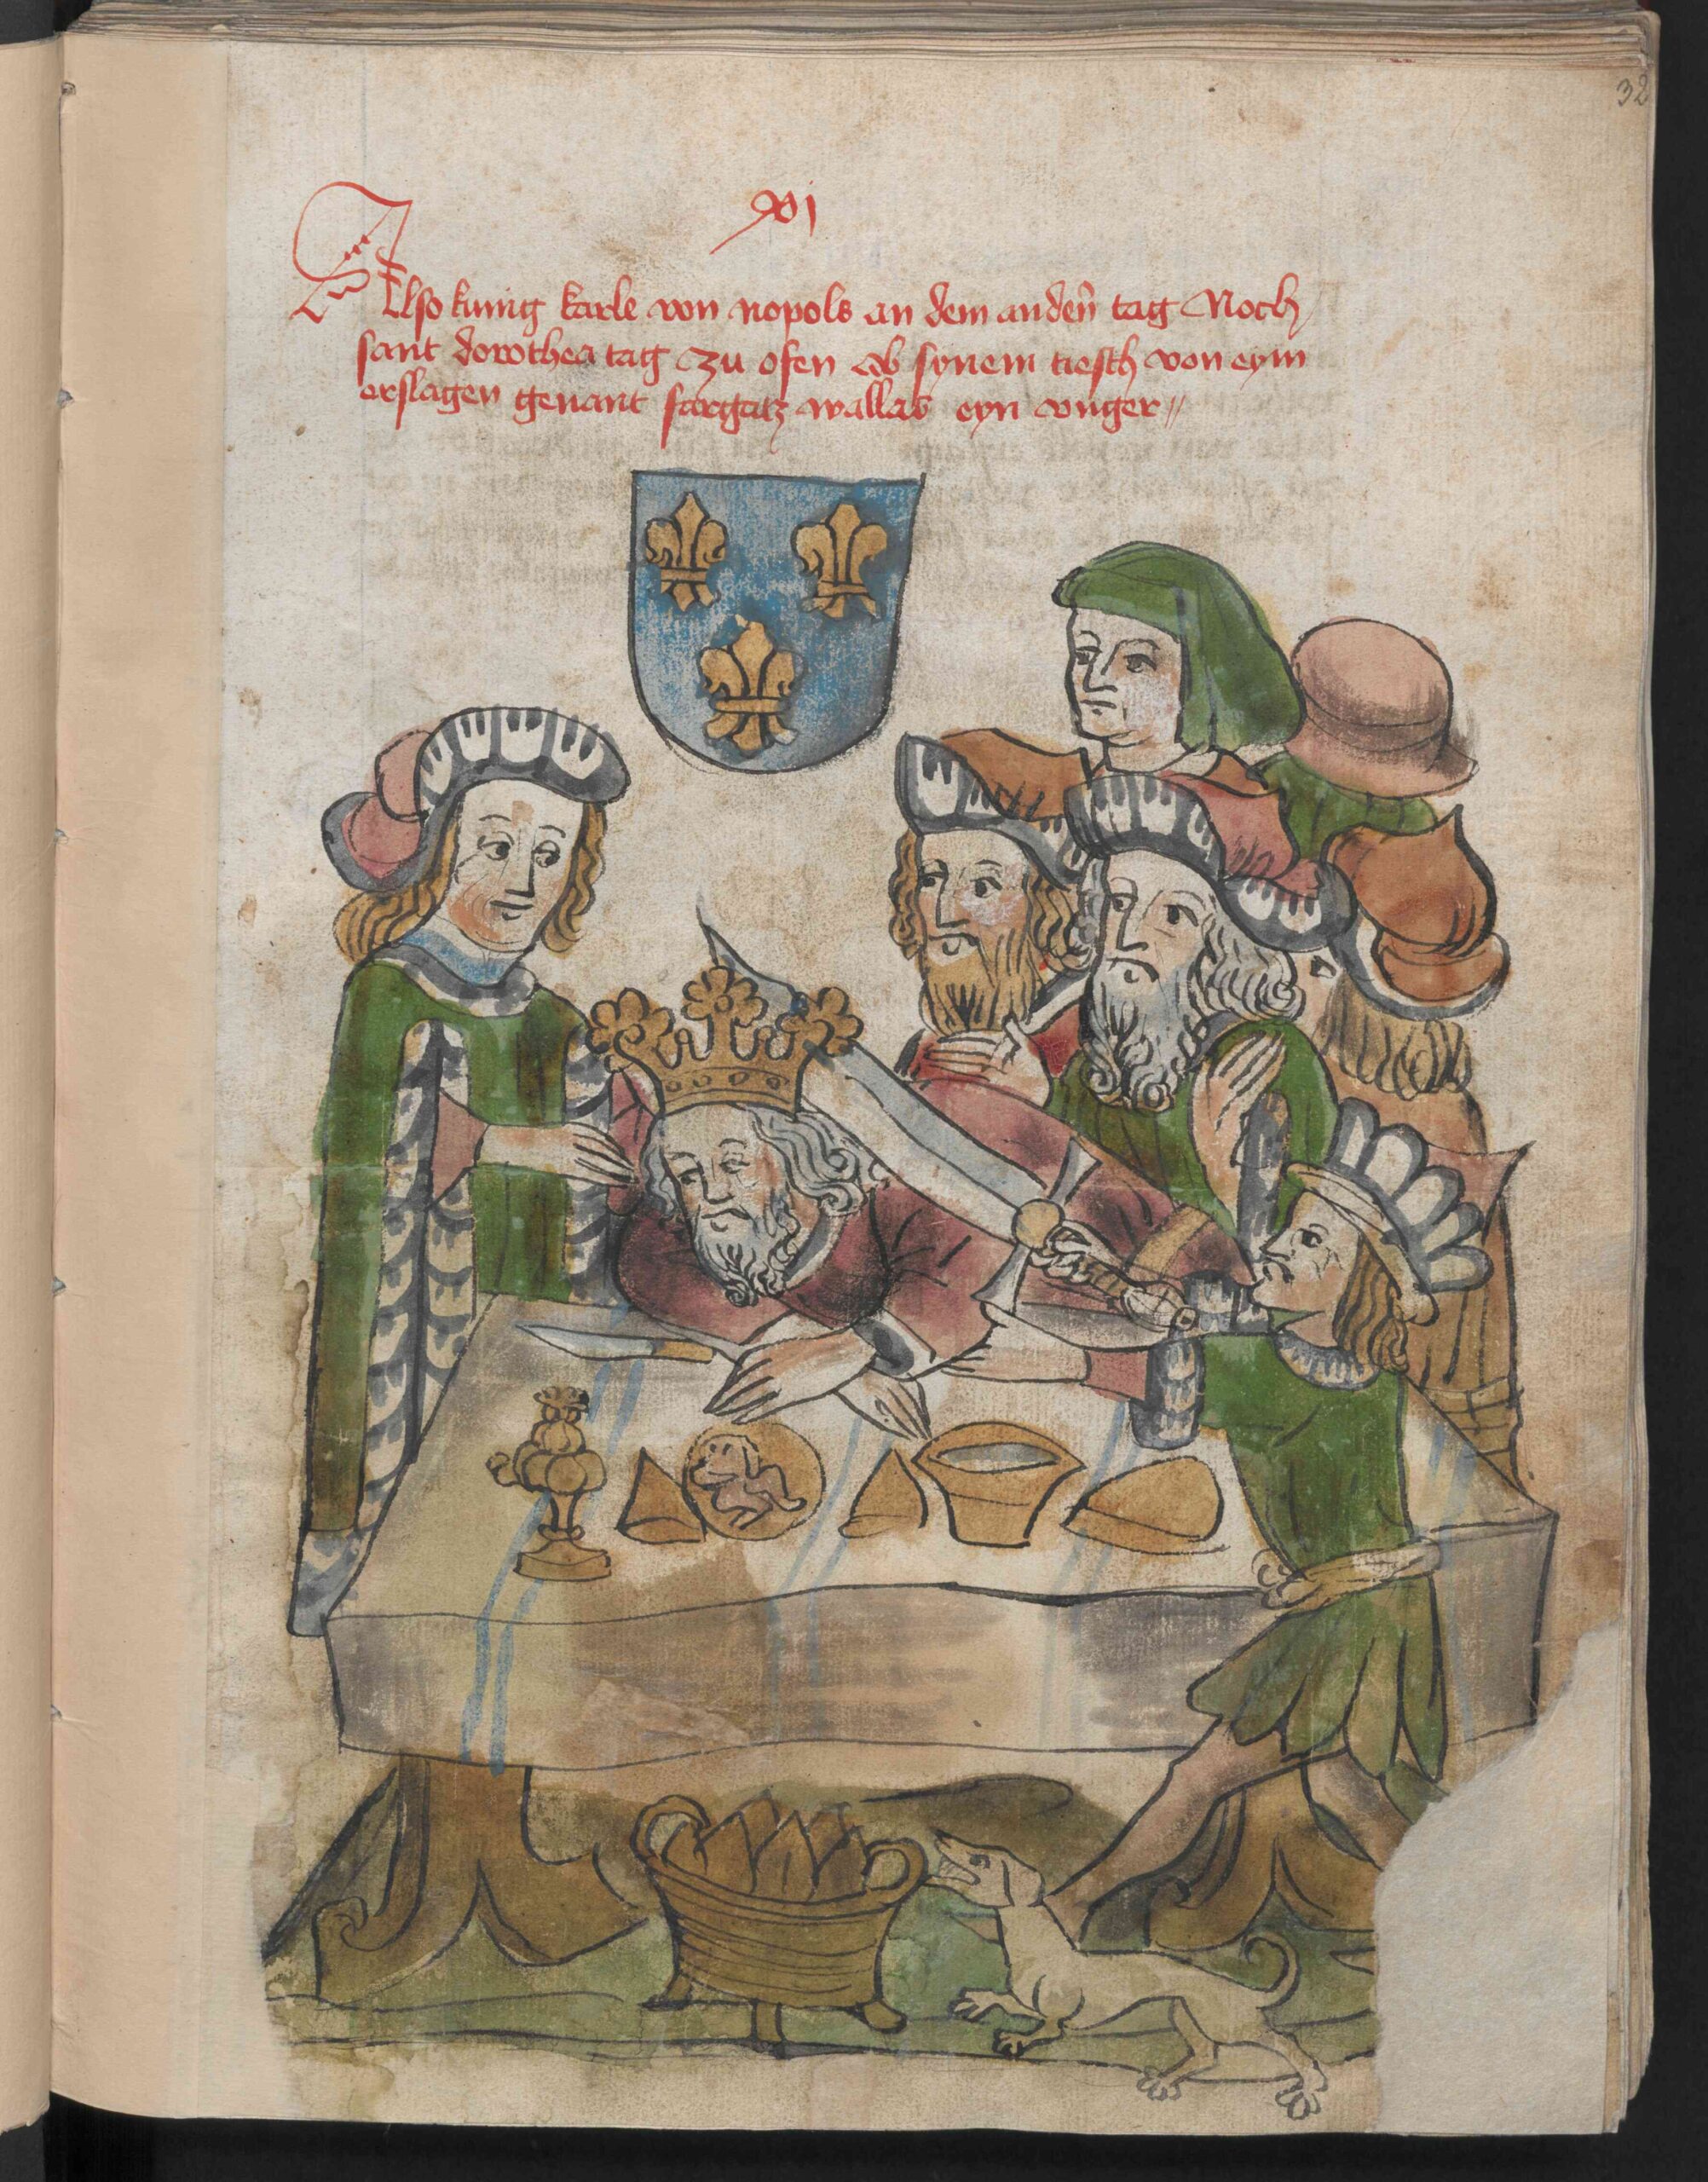 32
xvj
Also kunig karle von nopols an dem anderñ tag Noch
sant dorothea tag zu ofen ob synem tiesch von eym
erslagen genant fargatz wallas eyn vnger